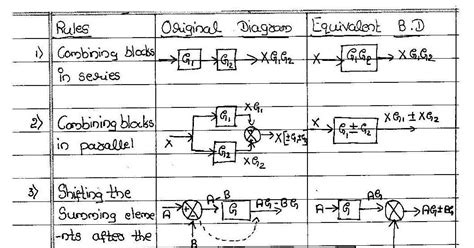 Rules Original Diagram Equivalent B.D
1) Combining blocks in series G1 G2 XG1G2 X G1G2 XG1G2
2) Combining blocks in parallel X G1 XG1 G2 XG2 X G1 ± G2 XG1 ± XG2
3) Shifting the Summing eleme-nts after the A A-B G AG-BG B A G AG AG±BG